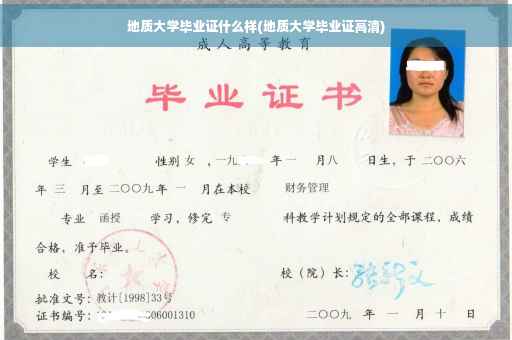 地质大学毕业证什么样(地质大学毕业证高清)
成人高等教育
毕业证书
学生 性别 女 ，一九 年 一 月八 日生，于 二〇〇六
年 三 月至 二〇〇九 年 一 月在本校 财务管理
专业 函授 学习，修完 专 科教学计划规定的全部课程，成绩
合格，准予毕业。
校 名： 校（院）长：
批准文号：教计[1998]33号
证书编号： 06001310 二〇〇九 年 一 月 十 日